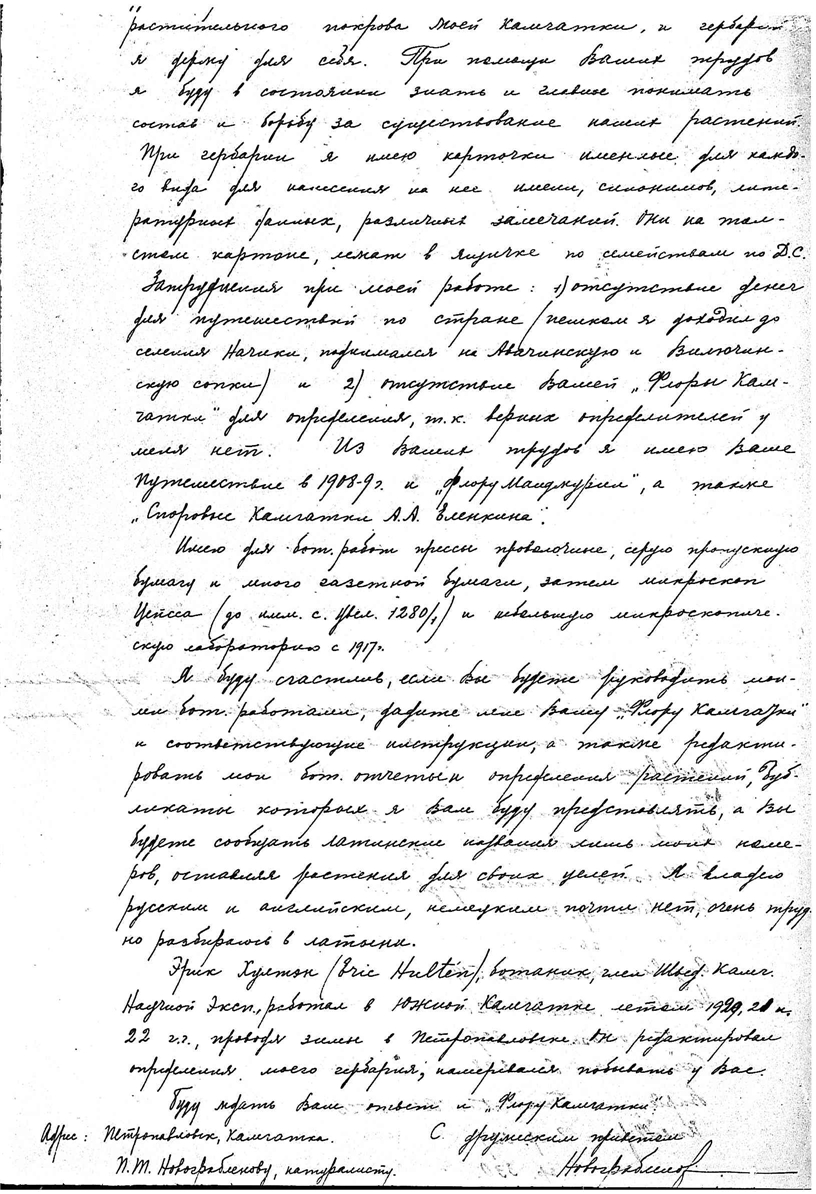 растительного покрова моей Камчатки, и гербарий
я держу для себя. При помощи Ваших трудов
я буду в состоянии знать и главное понимать
состав и борьбу за существование наших растений.
При гербарии я имею карточки именные для каждо-
го вида для нанесения на нее имени, синонимов, лите-
ратурных данных, различных замечаний. Они на тол-
стом картоне, лежат в ящичке по семействам по Д.С.
Затруднения при моей работе: 1) отсутствие денег
для путешествий по стране (пешком я доходил до
селения Начики, поднимался на Авачинскую и Вилючин-
скую сопки) и 2) отсутствие Вашей „Флоры Кам-
чатки" для определения, т.к. верных определителей у
меня нет. Из Ваших трудов я имею Ваше
Путешествие в 1908-9 г. и „Флору Манджурии", а также
„Споровые Камчатки А.А. Еленкина".
Имею для бот. работ прессы проволочные, серую пропускную
бумагу и много газетной бумаги, затем микроскоп
Цейсса (до имм. с. увел. 1280/1) и небольшую микроскопиче-
скую лабораторию с 1917 г.
Я буду счастлив, если Вы будете руководить мои-
ми бот. работами, дадите мне Вашу „Флору Камчатки"
и соответствующие инструкции, а также редакти-
ровать мои бот. отчеты и определения растений, дуб-
ликаты которых я Вам буду представлять, а Вы
будете сообщать латинские названия лишь моих номе-
ров, оставляя растения для своих целей. Я владею
русским и английским, немецким почти нет, очень труд-
но разбираюсь в латыни.
Эрик Хултэн (Eric Hultén), ботаник, член Швед. Камч.
Научной Эксп., работал в Южной Камчатке летом 1920, 21 и
22 г.г., проводя зимы в Петропавловске. Он редактировал
определения моего гербария, намеревался побывать у Вас.
Буду ждать Ваш ответ и „Флору Камчатки"
Адрес: Петропавловск, Камчатка. С дружеским приветом
П.Т. Новограбленову, натуралисту. Новограбленов